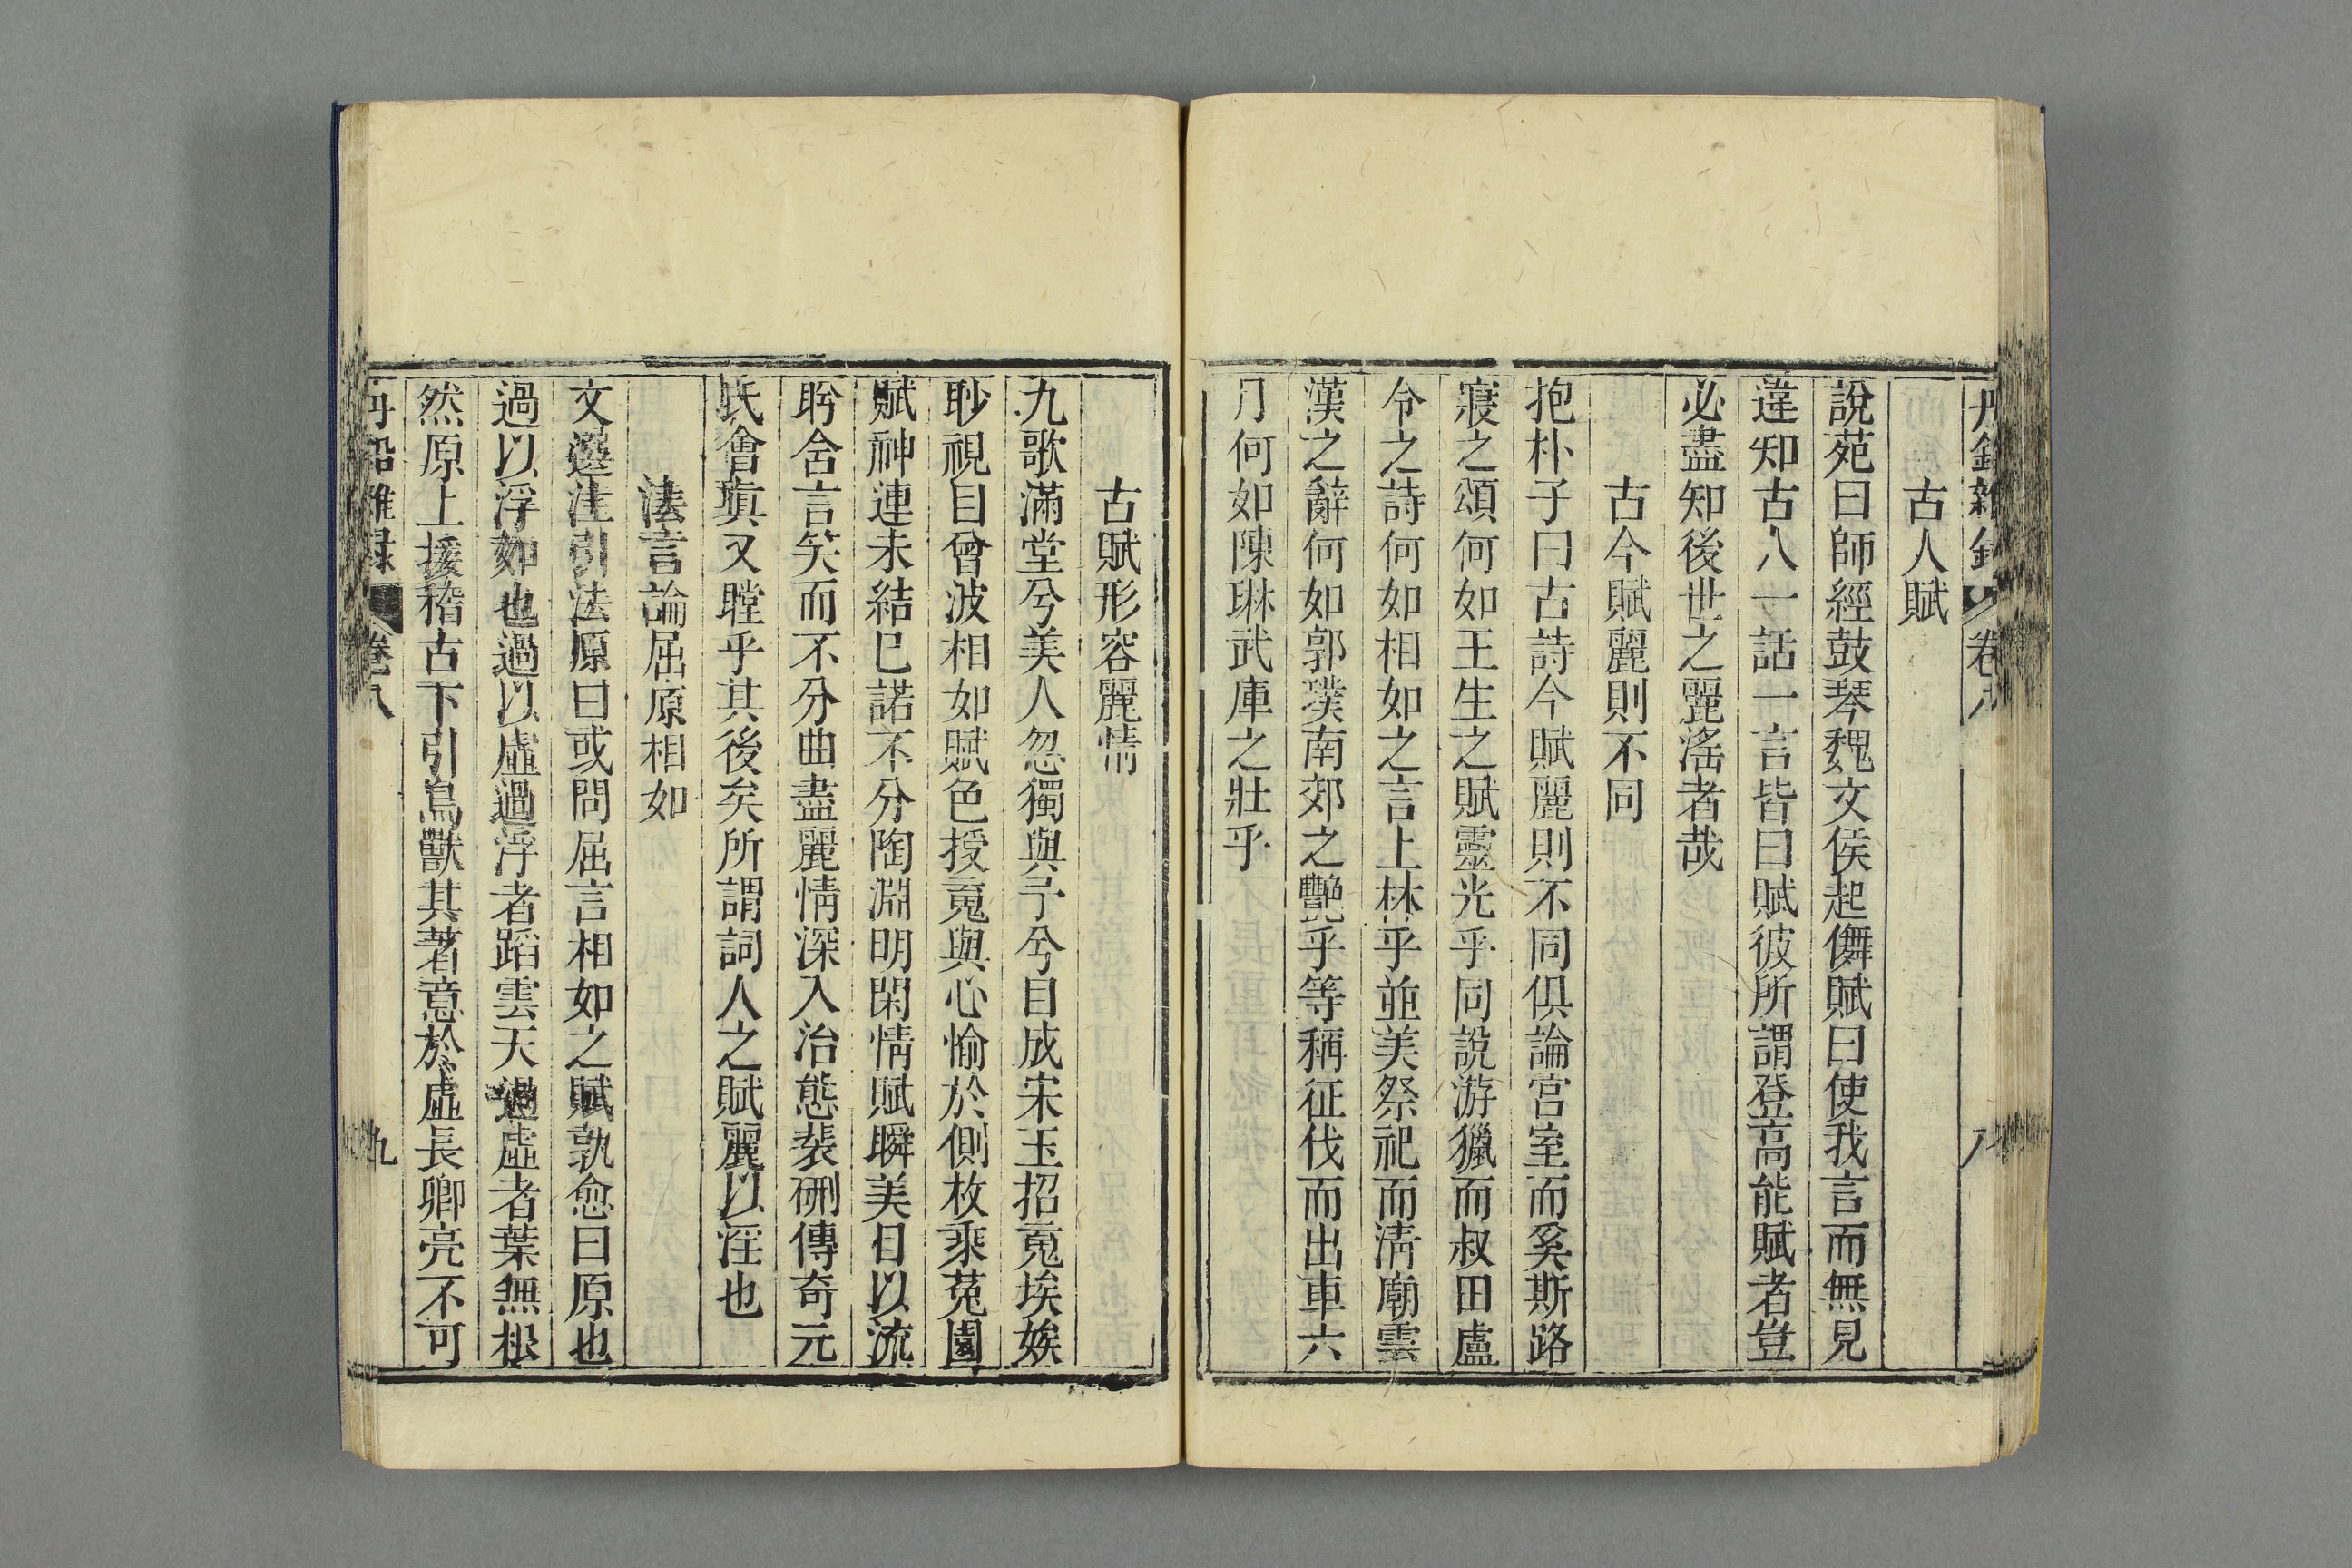 丹鉛雜錄 卷八 八
古人賦
說苑曰師經鼓琴魏文侯起儛賦曰使我言而無見
違知古人一話一言皆曰賦彼所謂登高能賦者豈
必盡知後世之麗滛者哉
古今賦麗則不同
抱朴子曰古詩今賦麗則不同俱論宮室而奚斯路
寢之頌何如王生之賦靈光乎同說游獵而叔田盧
令之詩何如相如之言上林乎並美祭祀而淸廟雲
漢之辭何如郭璞南郊之艷乎等稱征伐而出車六
月何如陳琳武庫之壯乎
古賦形容麗情
九歌滿堂兮美人忽獨與予兮目成宋玉招䰟埃娭
眇視目曾波相如賦色授䰟與心愉於側枚乘菟園
賦神連未結巳諾不分陶淵明閑情賦瞬美目以流
盻含言笑而不分曲盡麗情深入治態裴硎傳奇元
氏會眞又瞠乎其後矣所謂詞人之賦麗以淫也
法言論屈原相如
文選注引法原曰或問屈言相如之賦孰愈曰原也
過以浮如也過以虛過浮者蹈雲天過虛者葉無根
然原上援稽古下引鳥獸其著意於虛長卿亮不可
丹鉛雜錄 卷八 九